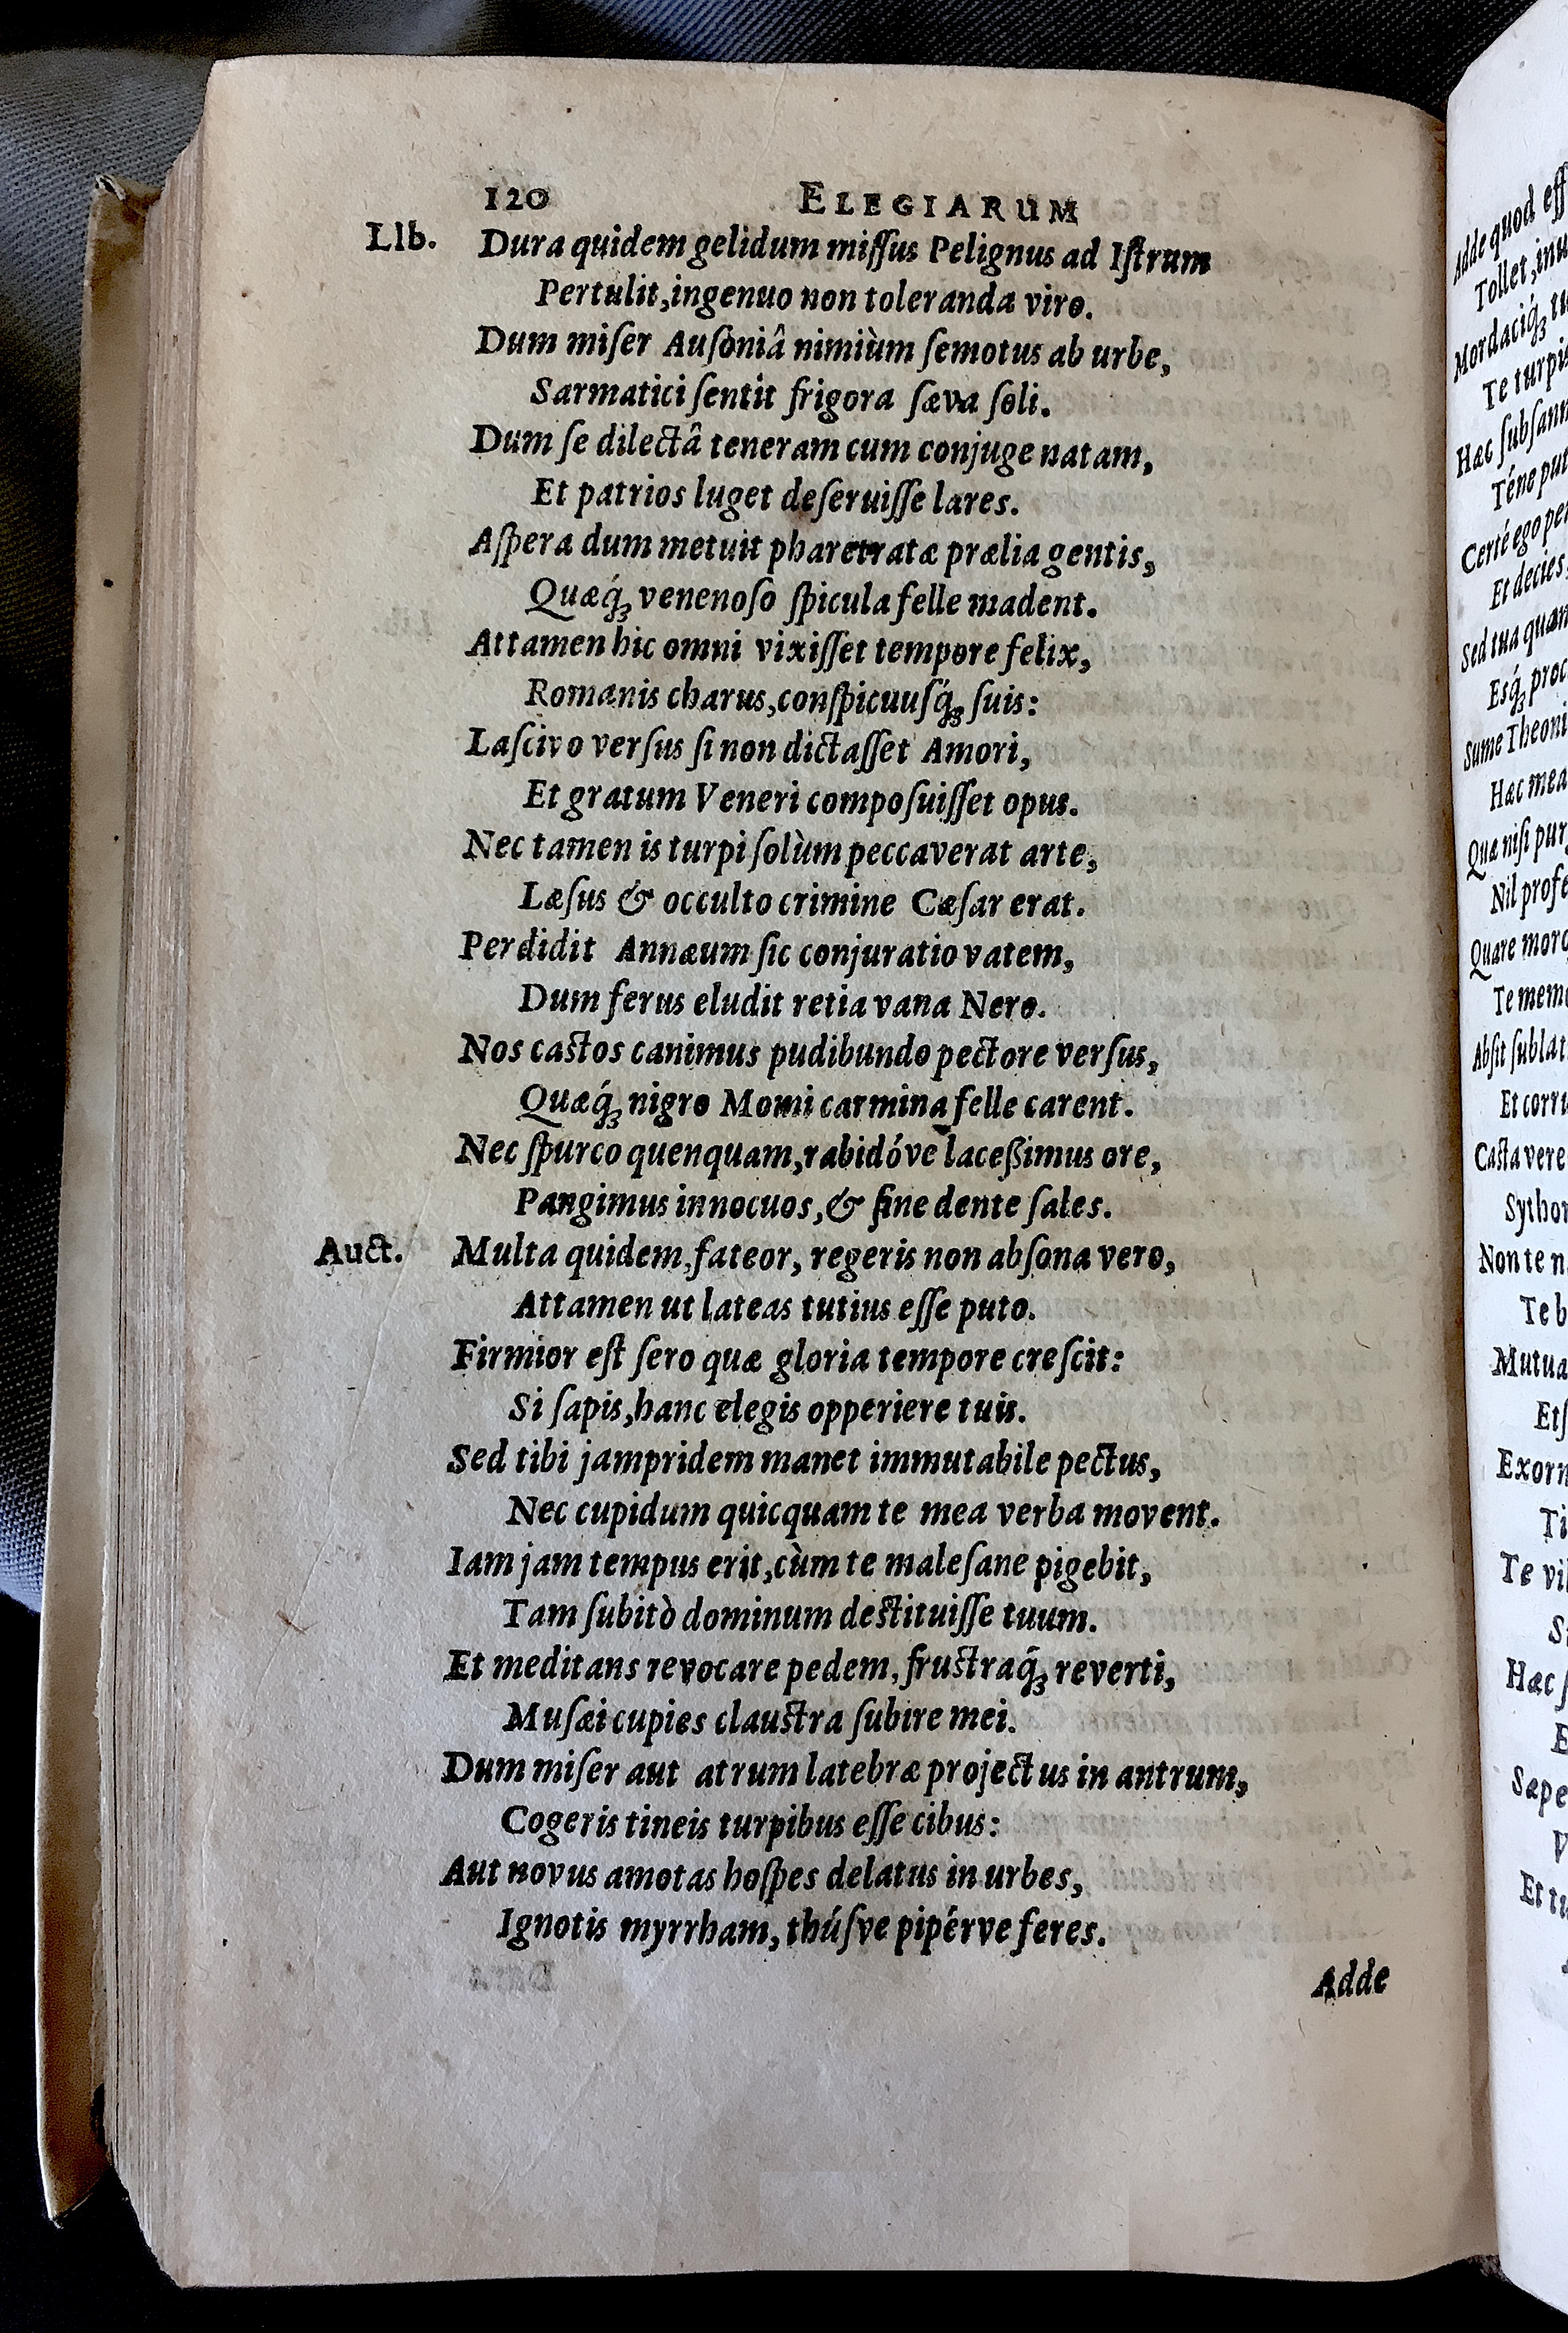 120 ELEGIARUM
LIb. Dura quidem gelidum miſſus Pelignus ad Iſtrum
Pertulit,ingenuo non toleranda viro.
Dum miſer Auſoniâ nimiùm ſemotus ab urbe,
Sarmatici ſentit frigora ſæva ſoli.
Dum ſe dilectâ teneram cum conjuge natam,
Et patrios luget deſeruiſſe lares.
Aſpera dum metuit pharetratæ prælia gentis,
Quæq́ꝫ venenoſo ſpicula felle madent.
Attamen hic omni vixiſſet tempore felix,
Romanis charus,conſpicuuſq́ꝫ ſuis:
Laſcivo verſus ſi non dictaſſet Amori,
Et gratum Veneri compoſuiſſet opus.
Nec tamen is turpi ſolùm peccaverat arte,
Læſus & occulto crimine Cæſar erat.
Perdidit Annæum ſic conjuratio vatem,
Dum ferus eludit retia vana Nero.
Nos caſtos canimus pudibundo pectore verſus,
Quæq́ꝫ nigro Momi carmina felle carent.
Nec ſpurco quenquam,rabidóve laceßimus ore,
Pangimus innocuos,& ſine dente ſales.
Auct. Multa quidem,fateor, regeris non abſona vero,
Attamen ut lateas tutius eſſe puto.
Firmior eſt ſero quæ gloria tempore creſcit:
Si ſapis,hanc elegis opperiere tuis.
Sed tibi jampridem manet immutabile pectus,
Nec cupidum quicquam te mea verba movent.
Iam jam tempus erit,cùm te maleſane pigebit,
Tam ſubitò dominum deſtituiſſe tuum.
Et meditans revocare pedem,fruſtraq́ꝫ reverti,
Muſæi cupies clauſtra ſubire mei.
Dum miſer aut atrum latebræ projectus in antrum,
Cogeris tineis turpibus eſſe cibus:
Aut novus amotas hoſpes delatus in urbes,
Ignotis myrrham, thúſve pipérve feres.
Adde
Adde quod eſſ
Tollet,inv
Mordaciq́ꝫ tu
Te turpis
Hæc ſubſann
Téne put
Certé ego per
Et decies
Sed tua quam
Esq́ꝫ proc
Sume Theoni
Hæc mea
Quæ niſi pur
Nil profe
Quare mord
Te meme
Abſit ſublat
Et corru
Caſta vere
Sython
Non te n
Te b
Mutua
Etſ
Exorn
Ti
Te vi
S
Hæc ſ
E
Sæpe
V
Et tu